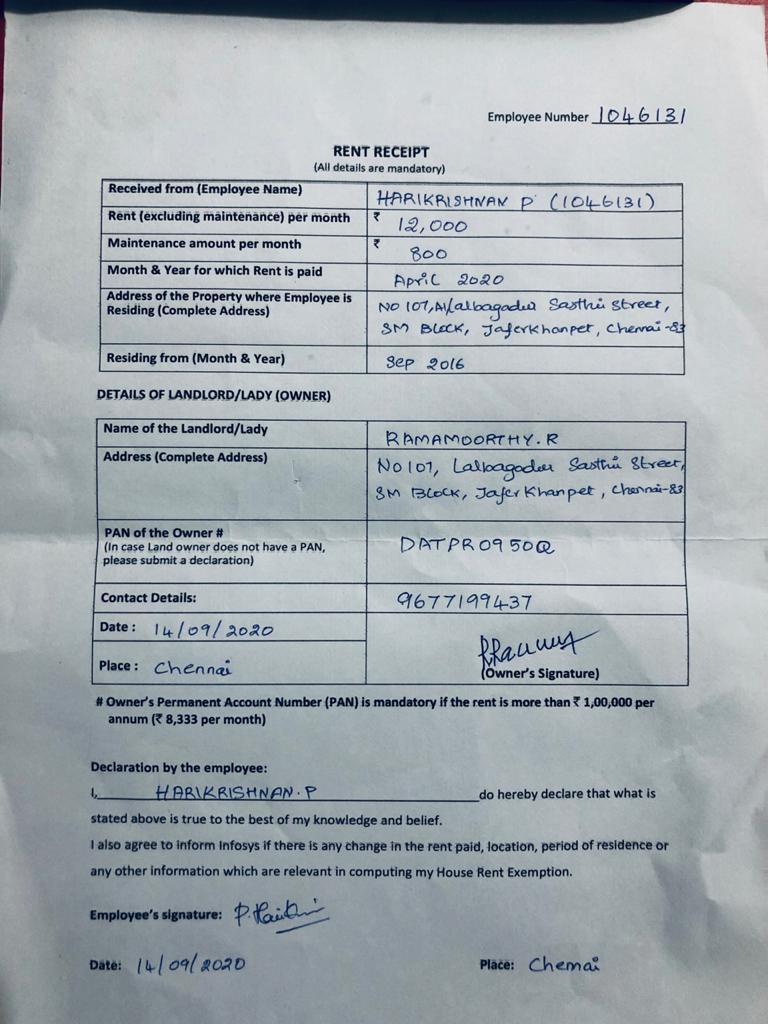 Employee Number 1046131
RENT RECEIPT
(All details are mandatory)
Received from (Employee Name) HARIKRISHNAN P (1046131)
Rent (excluding maintenance) per month ₹ 12,000
Maintenance amount per month ₹ 800
Month & Year for which Rent is paid April 2020
Address of the Property where Employee is No 107, Sasthri Street,
Residing (Complete Address) SM Block, Jaferkhanpet, Chennai-83
Residing from (Month & Year) Sep 2016
DETAILS OF LANDLORD/LADY (OWNER)
Name of the Landlord/Lady RAMAMOORTHY.R
Address (Complete Address) No 107, Lalbagadur Sasthri Street,
SM Block, Jafer Khanpet, Chennai-83
PAN of the Owner #
(In case Land owner does not have a PAN, DATPR0950Q
please submit a declaration)
Contact Details: 9677199437
Date : 14/09/2020
Place : Chennai (Owner's Signature)
# Owner's Permanent Account Number (PAN) is mandatory if the rent is more than ₹ 1,00,000 per
annum (₹ 8,333 per month)
Declaration by the employee:
I, HARIKRISHNAN.P do hereby declare that what is
stated above is true to the best of my knowledge and belief.
I also agree to inform Infosys if there is any change in the rent paid, location, period of residence or
any other information which are relevant in computing my House Rent Exemption.
Employee's signature:
Date: 14/09/2020 Place: Chennai